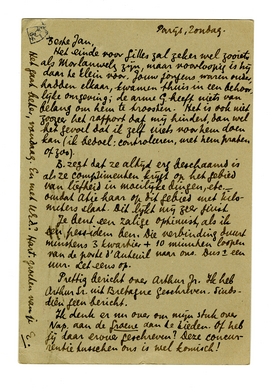 Parijs, Zondag.
Beste Jan,
Het einde voor Gilles zal zeker wel zooiets
als Morlanwelz zijn, maar voorloopig is hij
daar te klein voor. Jouw zorgens waren onder-
hadden elkaar, kwamen thuis in een behoor-
lijke omgeving; de arme G heeft niets van
belang om hem te troosten. Het is ook niet
zoozeer het rapport dat mij hindert, dan wel
het gevoel dat ik zelf niets voor hem doen
kan (ik bedoel: controleeren, met hem praten
of zoo).
B. zegt dat ze altijd erg beschaamd is
als ze complimenten krijgt op het gebied
van liefheid in moeilijke dingen, etc.
omdat Atie haar op dit gebied met kilo-
meters slaat. Dit lijkt mij zéér juist.
Je bent een zalige optimist als ik
een pessi- den ben. Die verbinding duurt
minstens 3 kwartier + 10 minuten loopen
van de porte d'Auteuil naar ons. Dus 1 een
uur. Let eens op.
Prettig bericht over Arthur Jr. Ik heb
Arthur Sr. uit Bretagne geschreven. Sinds-
dien geen bericht.
Ik denk er nu over om mijn stuk over
Nap. aan de Groene aan te bieden. Of heb
jij daar erover geschreven? Deze concur-
rentie tusschen ons is wel komisch!
Het gaat beter vandaag. En met
Hart. groeten van je E.